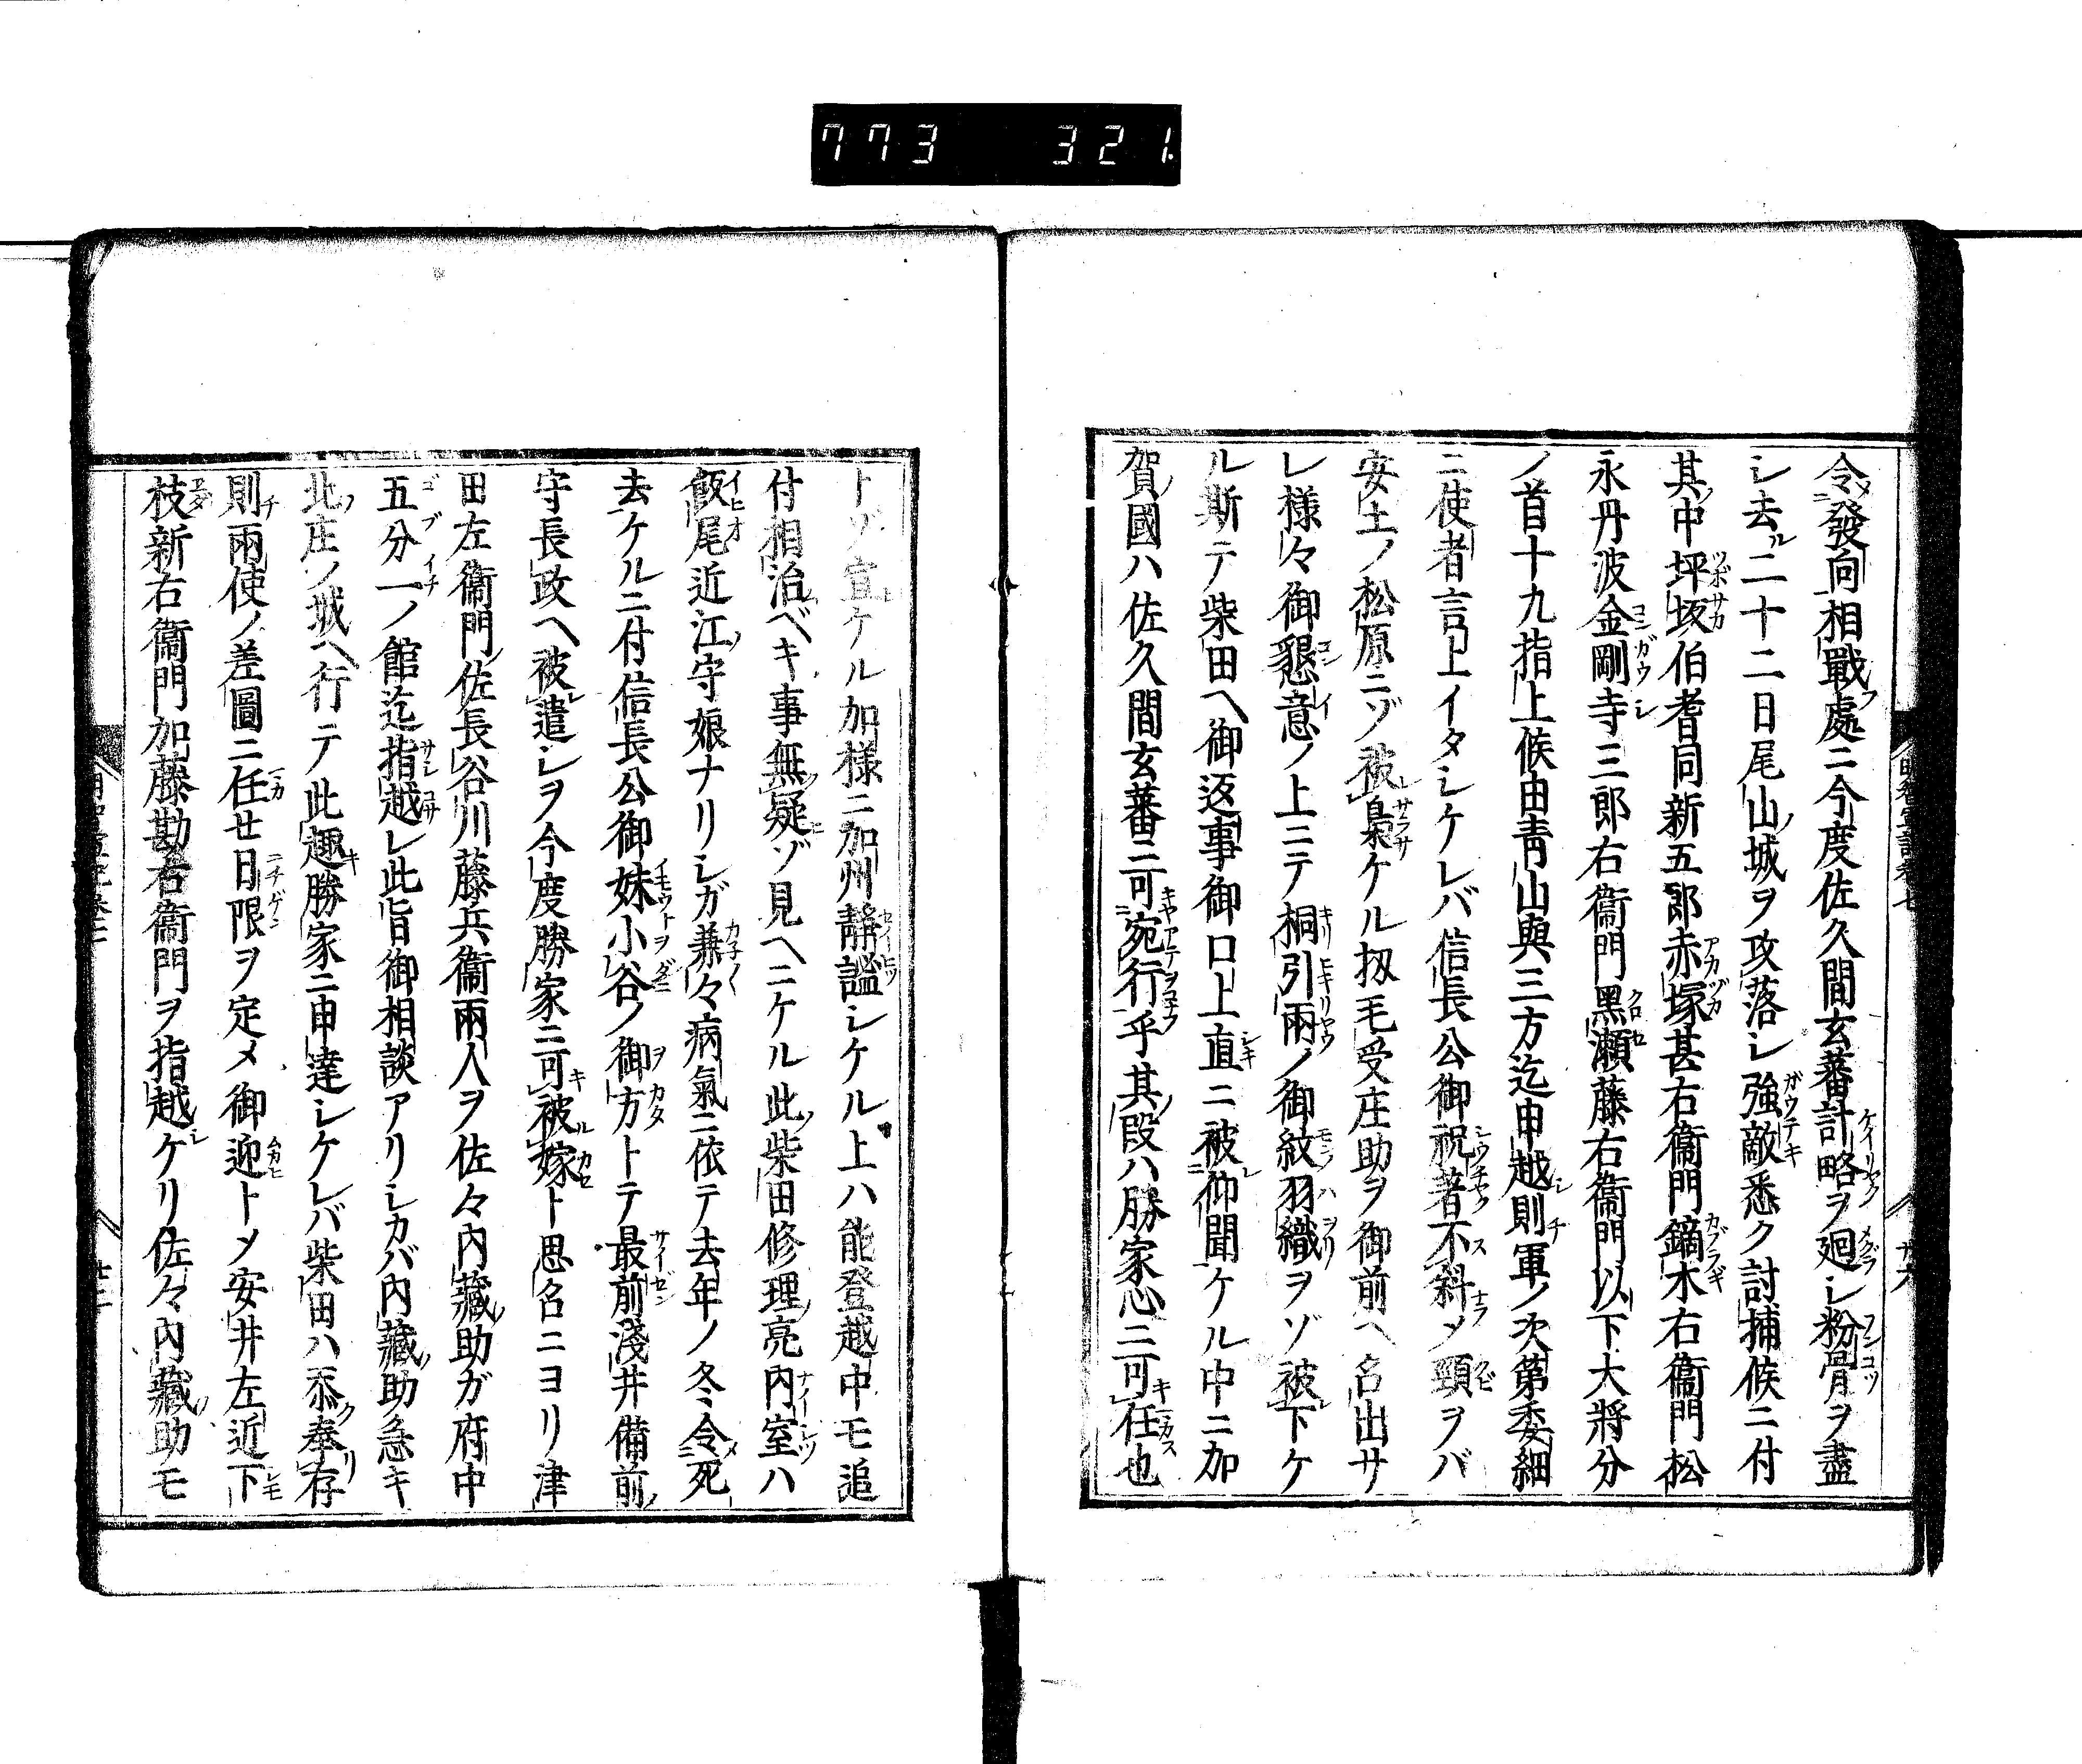 773 321
令發向相戰處ニ今度佐久間玄蕃計略ヲ廻シ粉骨ヲ盡
シ去ル二十二日尾山ノ城ヲ攻落シ強敵悉ク討捕候ニ付
其ノ中坪坂伯耆同新五郎赤塚甚右衞門鏑木右衞門松
永丹波金剛寺三郎右衞門黑瀬藤右衞門以下大將分
ノ首十九指上候由靑山與三方迄申越シ則チ軍ノ次第委細
ニ使者言上イタシケレバ信長公御祝着不斜メ頸ヲバ
安土ノ松原ニゾ被梟ケル扨毛受庄助ヲ御前ヘ召出サ
レ様々御懇意ノ上ニテ桐引兩ノ御紋羽織ヲゾ被下ケ
ル斯テ柴田ヘ御返事御口上直ニ被仰聞ケル中ニ加
賀ノ國ハ佐久間玄蕃ニ可宛行乎其ノ段ハ勝家心ニ可任也
トゾ宣ケル加樣ニ加州靜謐シケル上ハ能登越中モ追
付相治ルベキ事無疑ゾ見ヘニケル此ノ柴田修理ノ亮内室ハ
飯尾近江ノ守娘ナリシガ兼々病氣ニ依テ去年ノ冬令死
去ケルニ付信長公御妹小谷ノ御方トテ最前淺井備前ノ
守長政ヘ被遣シヲ今度勝家ニ可被嫁ト思召ニヨリ津
田左衞門ノ佐長谷川藤兵衞兩人ヲ佐々內藏ノ助ガ府中
五分一ノ館迄指越シ此旨御相談アリシカバ內藏ノ助急キ
北ノ庄ノ城ヘ行テ此趣キ勝家ニ申達シケレバ柴田ハ忝ク奉リ存
則チ兩使ノ差圖ニ任セ日限ヲ定メ御迎トメ安井左近下
枝新右衞門加藤勘右衞門ヲ指越シケリ佐々內藏ノ助モ